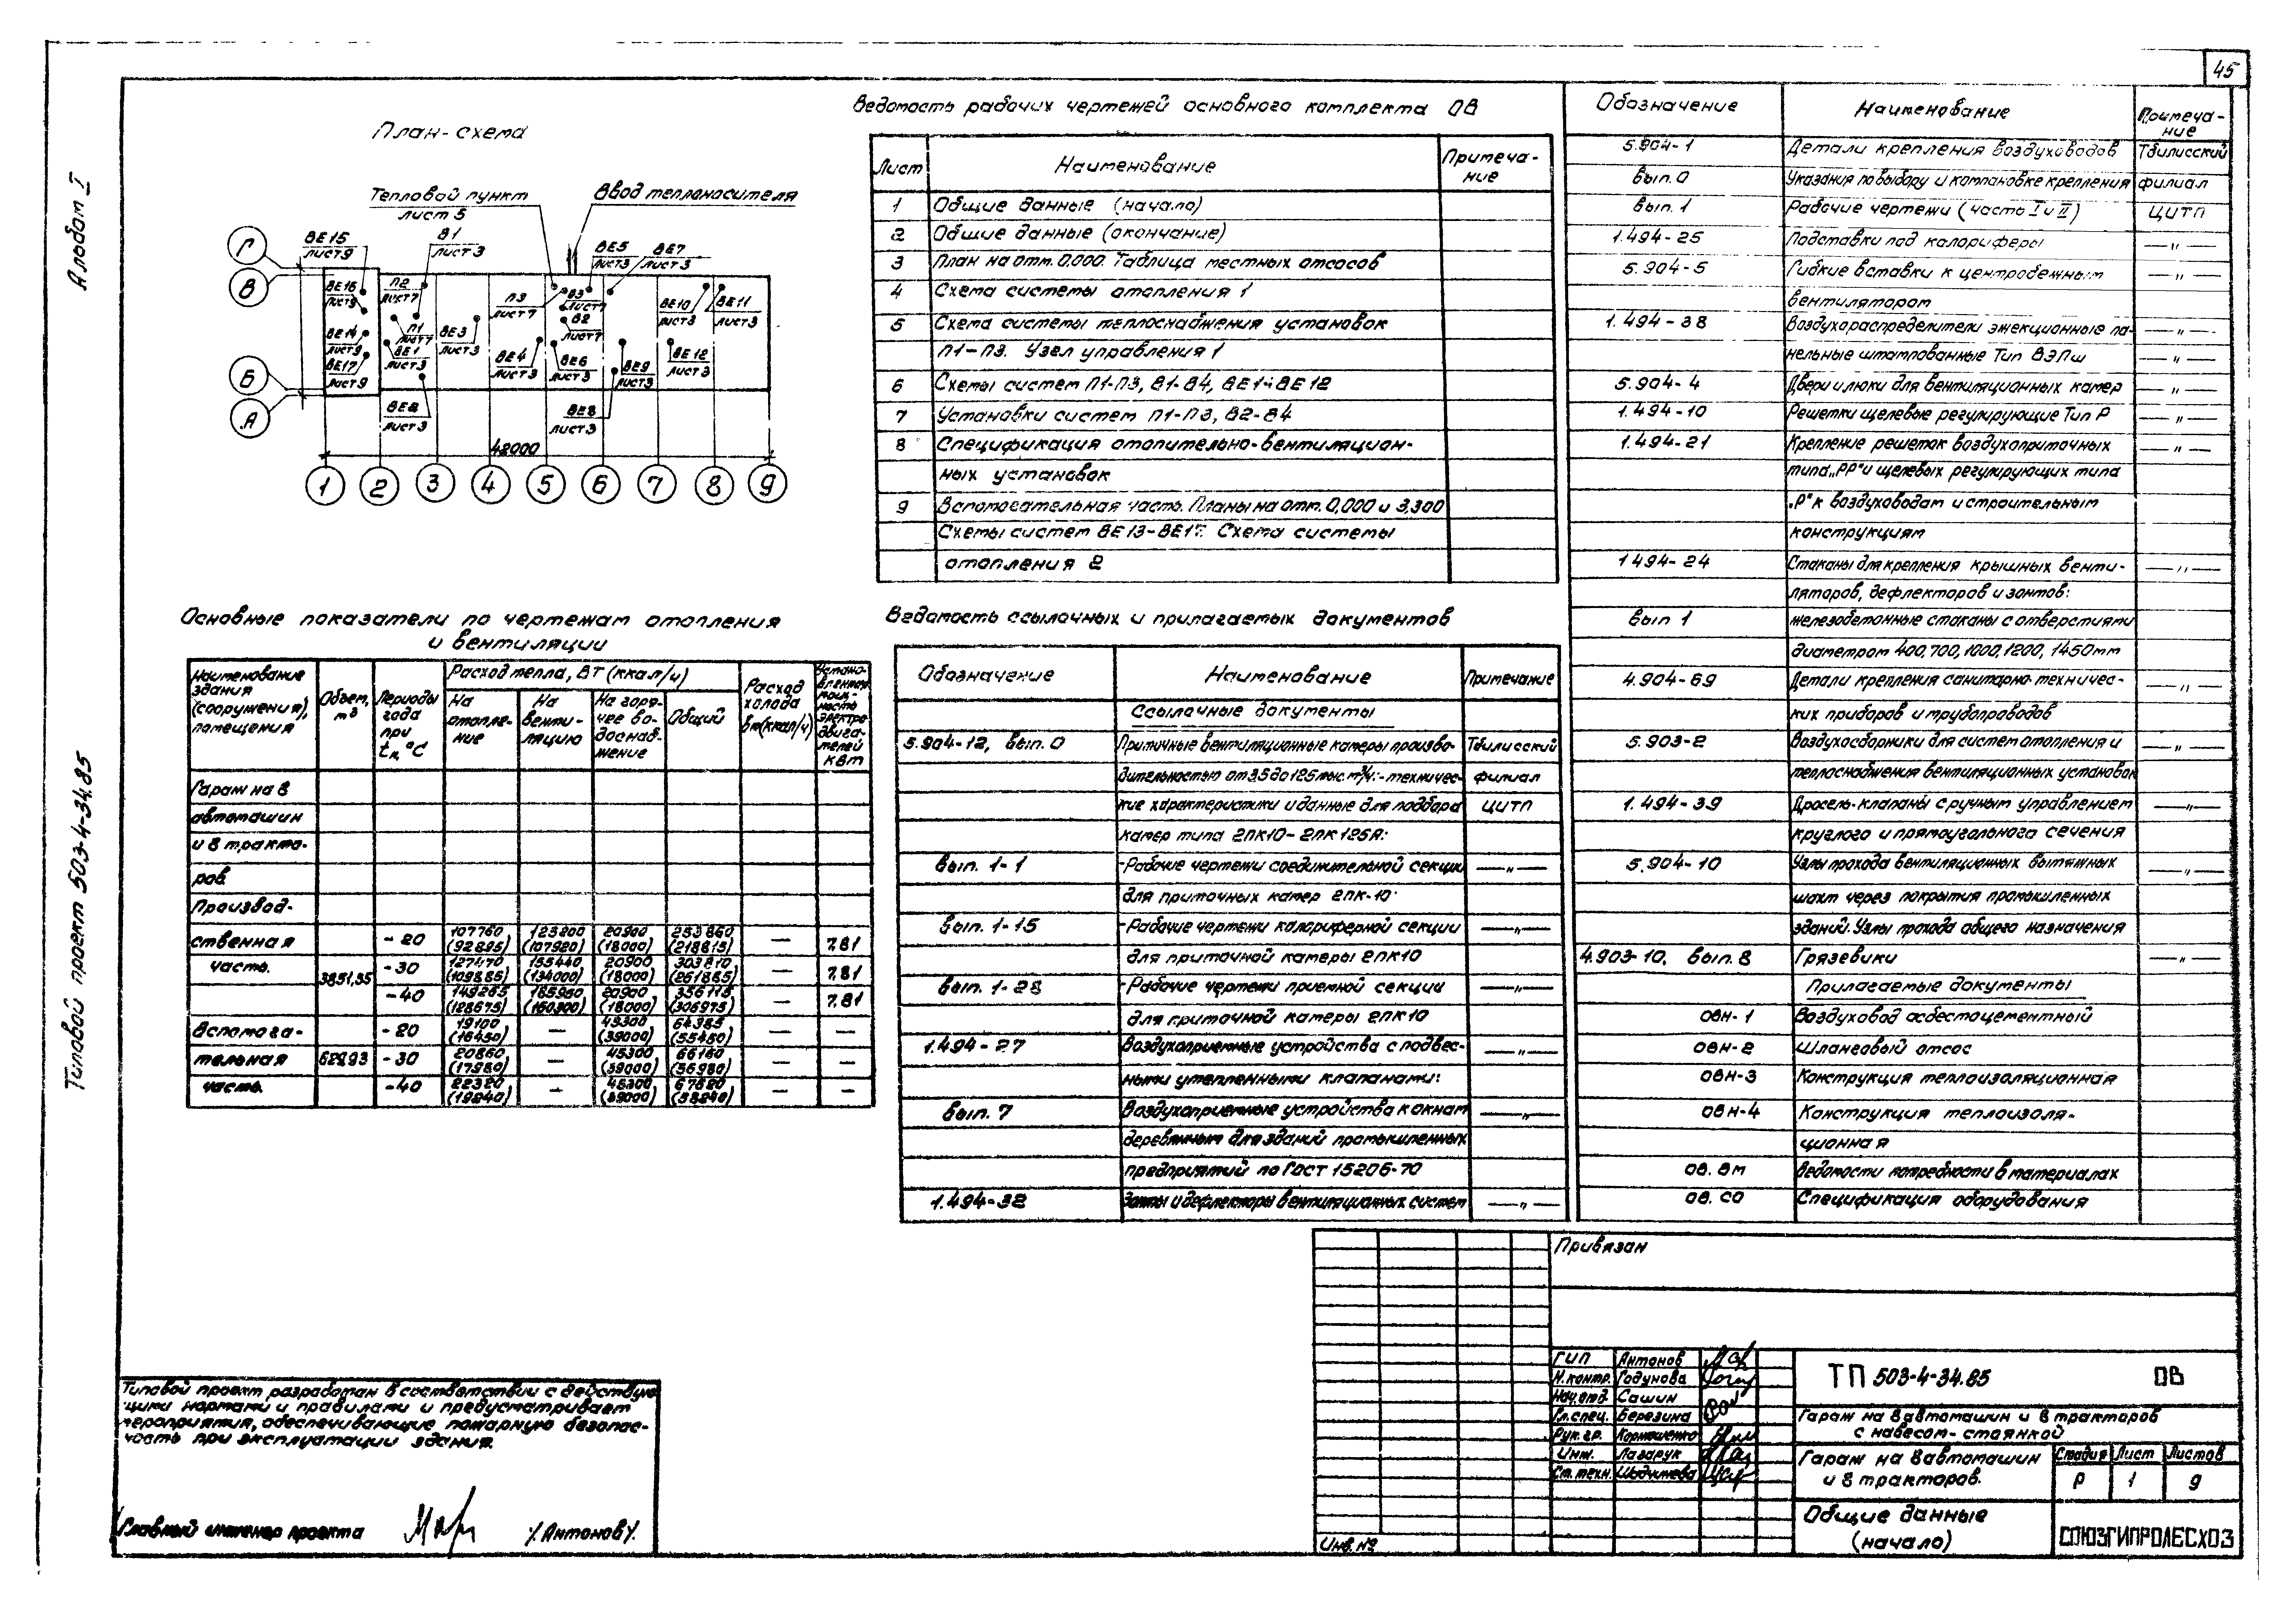 45
Альбом I
Типовой проект 503-4-34.85
План-схема
Тепловой пункт
лист 5
Ввод теплоносителя
Г
В
Б
А
ВЕ15
лист9
В1
лист 3
ВЕ5
лист3
ВЕ7
лист 3
ВЕ16
лист9
П2
лист7
П3
лист7
В3
лист7
ВЕ10
лист3
ВЕ11
лист3
ВЕ14
лист9
П1
лист7
ВЕ3
лист3
В2
лист7
ВЕ17
лист9
ВЕ1
лист3
ВЕ4
лист3
ВЕ6
лист3
ВЕ9
лист3
ВЕ12
лист3
ВЕ2
лист3
ВЕ8
лист3
48000
1 2 3 4 5 6 7 8 9
Ведомость рабочих чертежей основного комплекта ОВ
Лист Наименование Примеча-
ние
1 Общие данные (начало)
2 Общие данные (окончание)
3 План на отм. 0,000. Таблица местных отсосов
4 Схема системы отопления 1
5 Схема системы теплоснабжения установок
П1-П3. Узел управления 1
6 Схемы систем П1-П3, В1-В4, ВЕ1÷ВЕ12
7 Установки систем П1-П3, В2-В4
8 Спецификация отопительно-вентиляцион-
ных установок
9 Вспомогательная часть. Планы на отм. 0,000 и 3,300
Схемы систем ВЕ13-ВЕ17. Схема системы
отопления 2
Основные показатели по чертежам отопления
и вентиляции
Наименование
здания
(сооружения),
помещения
Объем,
м³
Периоды
года
при
tн, °С
Расход тепла, Вт (ккал/ч)
На
отопле-
ние
На
венти-
ляцию
На горя-
чее во-
доснаб-
жение
Общий
Расход
холода
Вт(ккал/ч)
Устано-
вленная
мощ-
ность
электро-
двига-
телей
кВт
Гараж на 8
автомашин
и 8 тракто-
ров.
Производ-
ственная -20 107760 (92895) 123200 (107920) 20900 (18000) 253860 (218815) — 7,81
часть. 3851,35 -30 127470 (109885) 155440 (134000) 20900 (18000) 303810 (261885) — 7,81
-40 149265 (128675) 185950 (160300) 20900 (18000) 356115 (306975) — 7,81
Вспомога- -20 19100 (16450) — 45300 (39000) 64385 (55450) — —
тельная 629,93 -30 20860 (17980) — 45300 (39000) 66160 (56980) — —
часть. -40 22320 (19240) — 45300 (39000) 67620 (58240) — —
Ведомость ссылочных и прилагаемых документов
Обозначение Наименование Примечание
Ссылочные документы
5.904-12, вып. 0 Приточные вентиляционные камеры произво- Тбилисский
дительностью от 3,5 до 125 тыс. м³/ч:-техничес- филиал
кие характеристики и данные для подбора ЦИТП
камер типа 2ПК10-2ПК125А:
вып. 1-1 -Рабочие чертежи соединительной секции —„—
для приточных камер 2ПК-10
вып. 1-15 -Рабочие чертежи калориферной секции —„—
для приточной камеры 2ПК10
вып. 1-28 -Рабочие чертежи приемной секции —„—
для приточной камеры 2ПК10
1.494-27 Воздухоприемные устройства с подвес- —„—
ными утепленными клапанами:
вып. 7 Воздухоприемные устройства к окнам —„—
деревянным для зданий промышленных
предприятий по ГОСТ 15206-70
1.494-32 Зонты и дефлекторы вентиляционных систем —„—
Обозначение Наименование Примеча-
ние
5.904-1 Детали крепления воздуховодов Тбилисский
вып. 0 Указания по выбору и компановке крепления филиал
вып. 1 Рабочие чертежи (часть I и II) ЦИТП
1.494-25 Подставки под калориферы —„—
5.904-5 Гибкие вставки к центробежным —„—
вентиляторам
1.494-38 Воздухораспределители эжекционные па- —„—
нельные штампованные Тип ВЭПш —„—
5.904-4 Двери и люки для вентиляционных камер —„—
1.494-10 Решетки щелевые регулирующие Тип Р —„—
1.494-21 Крепление решеток воздухоприточных —„—
типа „РР“ и щелевых регулирующих типа
„Р“ к воздуховодам и строительным
конструкциям
1.494-24 Стаканы для крепления крышных венти- —„—
ляторов, дефлекторов и зонтов:
вып 1 железобетонные стаканы с отверстиями
диаметром 400, 700, 1000, 1200, 1450мм
4.904-69 Детали крепления санитарно-техничес- —„—
ких приборов и трубопроводов
5.903-2 Воздухосборники для систем отопления и —„—
теплоснабжения вентиляционных установок
1.494-39 Дросель-клапаны с ручным управлением —„—
круглого и прямоугольного сечения
5.904-10 Узлы прохода вентиляционных вытяжных —„—
шахт через покрытия промышленных
зданий. Узлы прохода общего назначения
4.903-10, вып. 8 Грязевики —„—
Прилагаемые документы
ОВН-1 Воздуховод асбестоцементный
ОВН-2 Шланговый отсос
ОВН-3 Конструкция теплоизоляционная
ОВН-4 Конструкция теплоизоля-
ционная
ОВ. ВМ Ведомости потребности в материалах
ОВ. СО Спецификация оборудования
Типовой проект разработан в соответствии с действую-
щими нормами и правилами и предусматривает
мероприятия, обеспечивающие пожарную безопас-
ность при эксплуатации здания.
Главный инженер проекта /Антонов/.
Привязан
Инв. №
ГИП Антонов
Н.контр. Годунова
Нач.отд. Сашин
Гл.спец. Березина
Рук.гр. Корнюшенко
Инж. Лазарук
Ст.техн.
ТП 503-4-34.85 ОВ
Гараж на 8 автомашин и 8 тракторов
с навесом-стоянкой
Гараж на 8 автомашин
и 8 тракторов.
Стадия Лист Листов
Р 1 9
Общие данные
(начало)
СОЮЗГИПРОЛЕСХОЗ